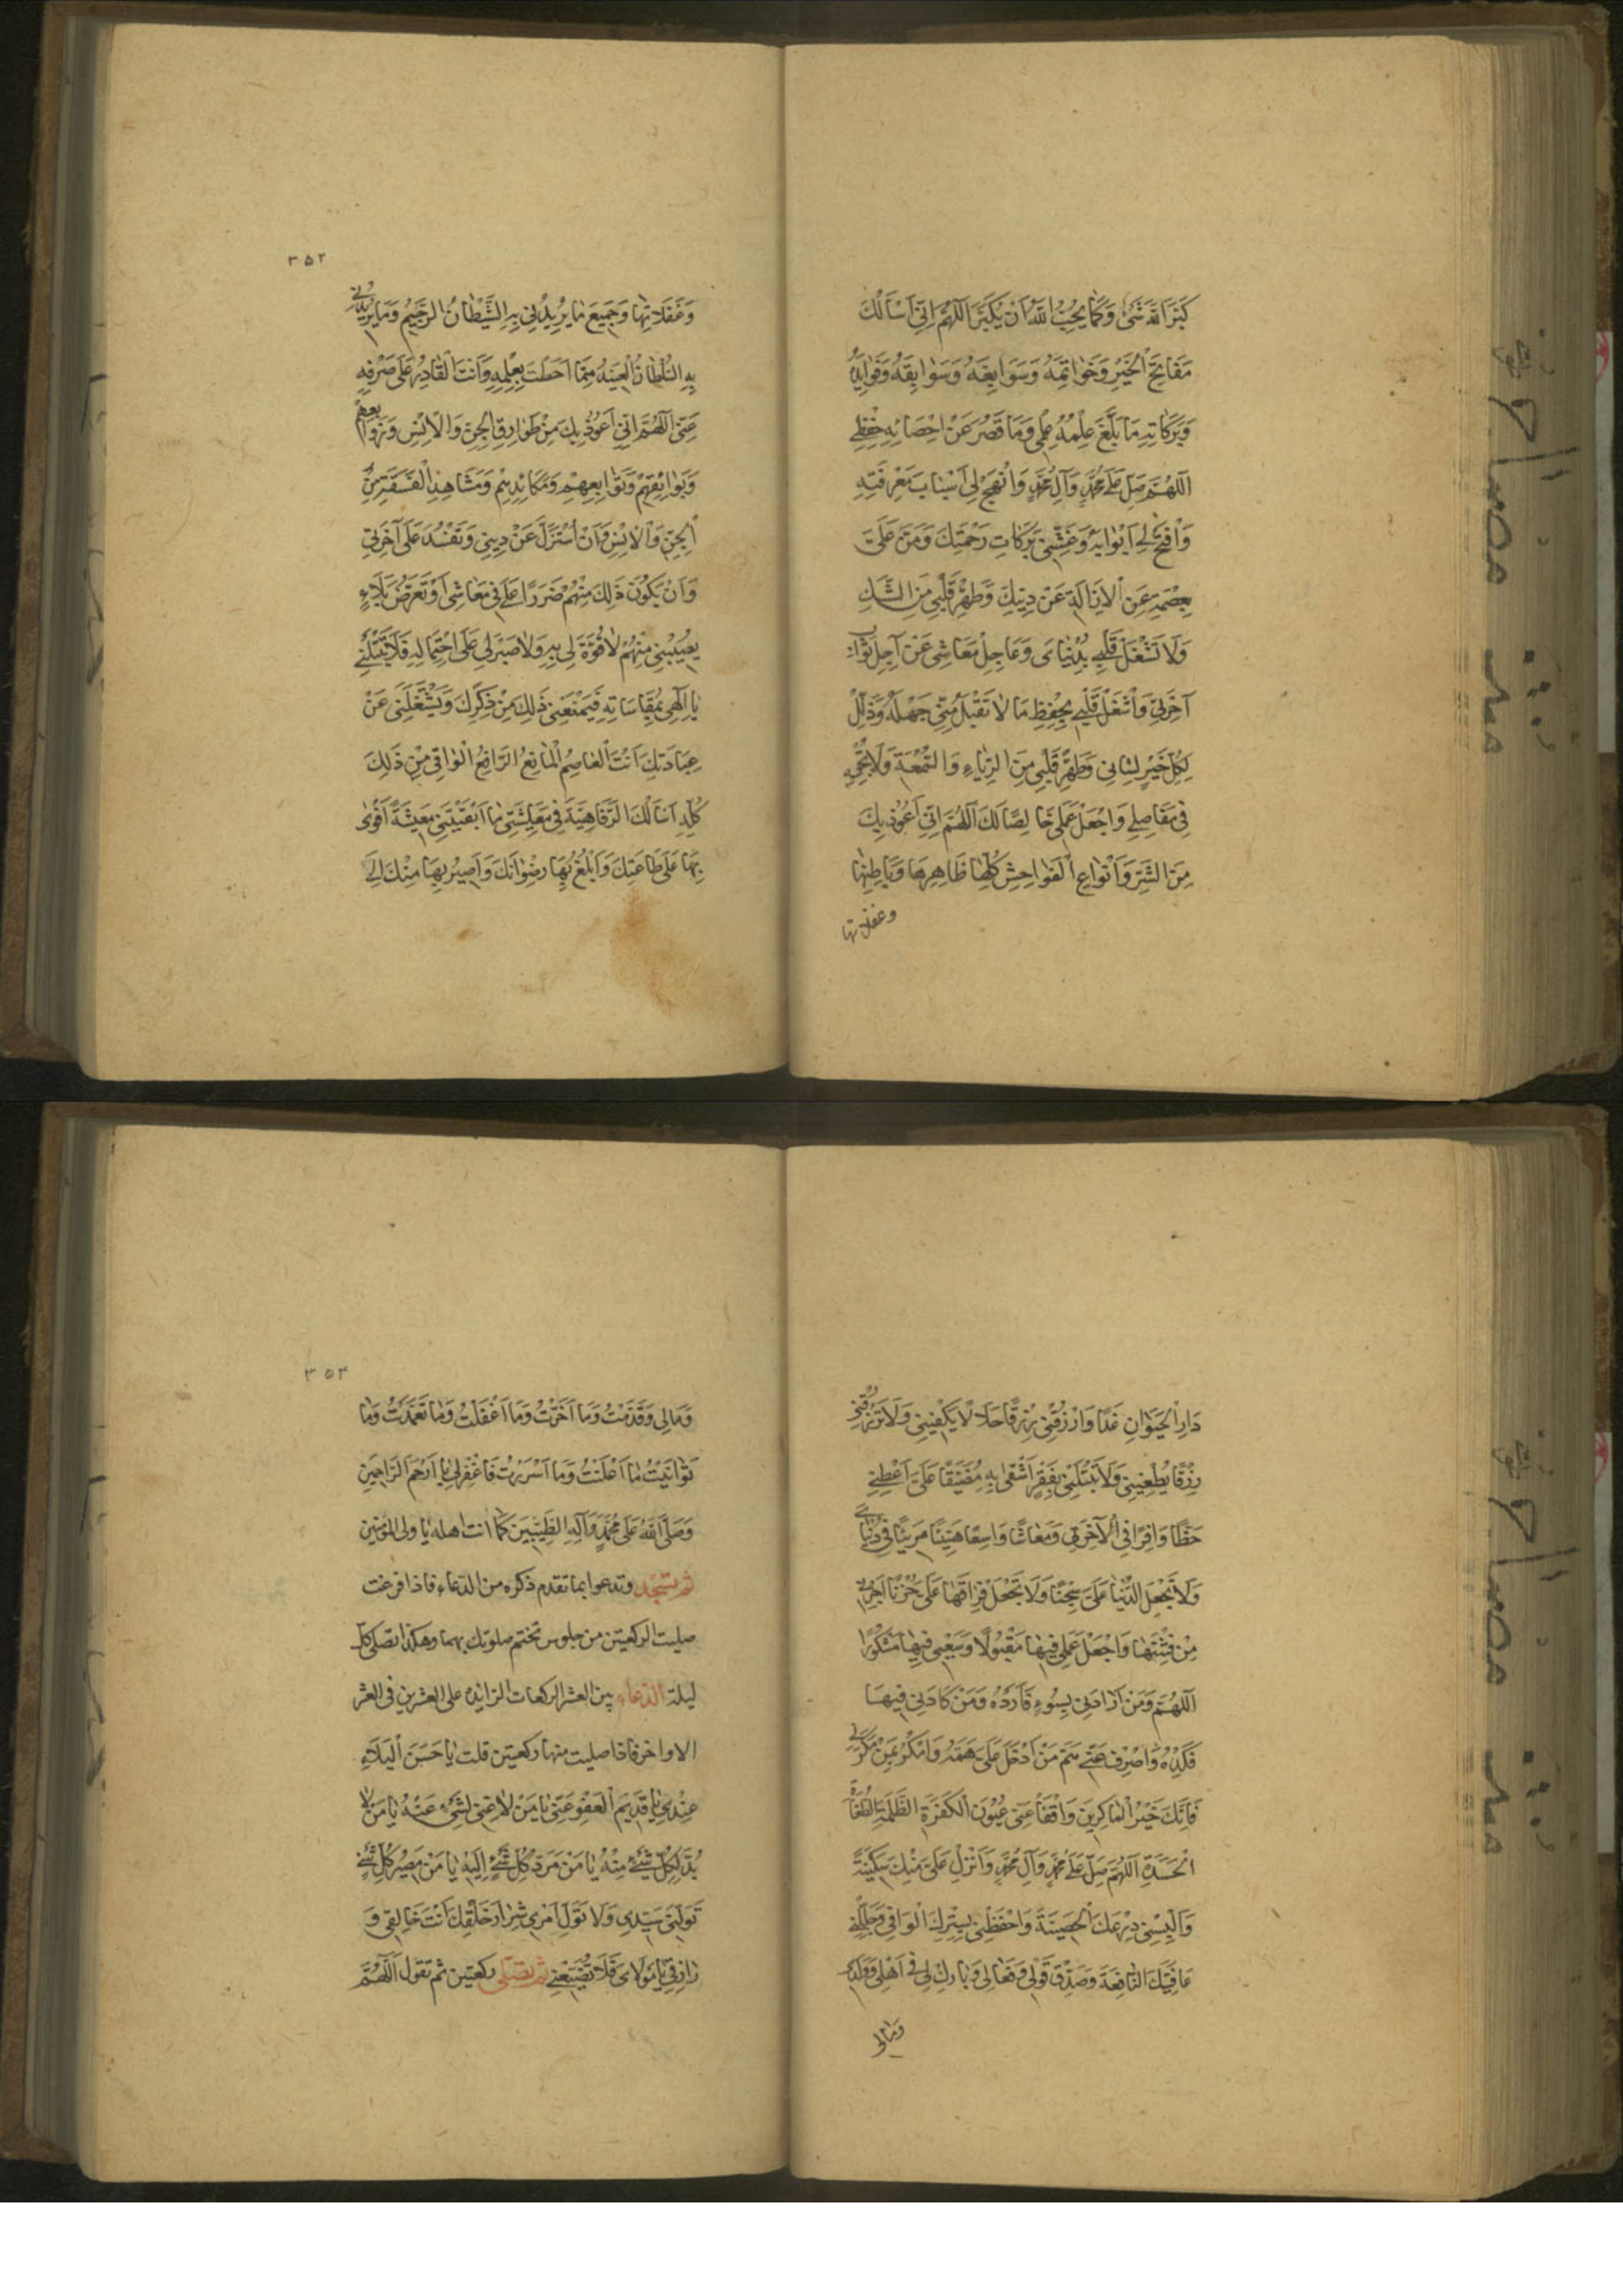 كَبَّرَ اللهَ شَيْءٌ وَكَمَا يُحِبُّ اللهُ أَنْ يُكَبَّرَ اَللّهُمَّ اِنّي اَسْاَلُكَ
مَفَاتِيحَ الْخَيْرِ وَخَوَاتِمَهُ وَسَوَابِغَهُ وَسَوَابِقَهُ وَفَوَايِدَهُ
وَبَرَكَاتِهِ مَا بَلَغَ عِلْمُهُ عِلْمِي وَمَا قَصُرَ عَنْ اِحْصَائِهِ حِفْظِي
اَللّهُمَّ صَلِّ عَلَى مُحَمَّدٍ وَآلِ مُحَمَّدٍ وَانْهَجْ لِي اَسْبَابَ مَعْرِفَتِهِ
وَافْتَحْ لِي اَبْوَابَهُ وَغَشِّنِي بَرَكَاتِ رَحْمَتِكَ وَمُنَّ عَلَيَّ
بِعِصْمَةٍ عَنِ الْاِزَالَةِ عَنْ دِينِكَ وَطَهِّرْ قَلْبِي مِنَ الشَّكِّ
وَلَا تَشْغَلْ قَلْبِي بِدُنْيَايَ وَعَاجِلِ مَعَاشِي عَنْ آجِلِ ثَوَابِ
آخِرَتِي وَاشْغَلْ قَلْبِي بِحِفْظِ مَا لَا تَقْبَلُ مِنِّي جَهْلَهُ وَذَلِّلْ
لِكُلِّ خَيْرٍ لِسَانِي وَطَهِّرْ قَلْبِي مِنَ الرِّيَاءِ وَالسُّمْعَةِ وَلَا تُجْرِهِ
فِي مَفَاصِلِي وَاجْعَلْ عَمَلِي خَالِصًا لَكَ اَللّهُمَّ اِنِّي اَعُوذُ بِكَ
مِنَ الشَّرِّ وَاَنْوَاعِ الْفَوَاحِشِ كُلِّهَا ظَاهِرِهَا وَبَاطِنِهَا
وغفلاتها
٣٥٢
وَغَفَلَاتِهَا وَجَمِيعِ مَا يُرِيدُنِي بِهِ الشَّيْطَانُ الرَّجِيمُ وَمَا يُرِيدُنِي
بِهِ السُّلْطَانُ الْعَنِيدُ مِمَّا اَحَطْتَ بِعِلْمِهِ وَاَنْتَ الْقَادِرُ عَلَى صَرْفِهِ
عَنِّي اَللّهُمَّ اِنِّي اَعُوذُ بِكَ مِنْ طَوَارِقِ الْجِنِّ وَالْاِنْسِ وَزَوَابِعِهِمْ
وَبَوَائِقِهِمْ وَتَوَابِعِهِمْ وَمَكَائِدِهِمْ وَمَشَاهِدِ الْفَسَقَةِ مِنَ
الْجِنِّ وَالْاِنْسِ وَاَنْ اُسْتَزَلَّ عَنْ دِينِي وَتَفْسُدَ عَلَيَّ آخِرَتِي
وَاَنْ يَكُونَ ذَلِكَ مِنْهُمْ ضَرَرًا عَلَيَّ فِي مَعَاشِي اَوْ تَعَرُّضَ بَلَاءٍ
يُصِيبُنِي مِنْهُمْ لَا قُوَّةَ لِي بِهِ وَلَا صَبْرَ لِي عَلَى احْتِمَالِهِ فَلَا تَبْتَلِنِي
يَا اِلَهِي بِمُقَاسَاتِهِ فَيَمْنَعُنِي ذَلِكَ مِنْ ذِكْرِكَ وَيَشْغَلُنِي عَنْ
عِبَادَتِكَ اَنْتَ الْعَاصِمُ الْمَانِعُ الدَّافِعُ الْوَاقِي مِنْ ذَلِكَ
كُلِّهِ اَسْاَلُكَ الرَّفَاهِيَةَ فِي مَعِيشَتِي مَا اَبْقَيْتَنِي مَعِيشَةً اَقْوَى
بِهَا عَلَى طَاعَتِكَ وَاَبْلُغُ بِهَا رِضْوَانَكَ وَاَصِيرُ بِهَا مِنْكَ اِلَى
دَارِ الْحَيَوَانِ غَدًا وَارْزُقْنِي رِزْقًا حَلَالًا يَكْفِينِي وَلَا تَرْزُقْنِي
رِزْقًا يُطْغِينِي وَلَا تَبْتَلِنِي بِفَقْرٍ اَشْقَى بِهِ مُضَيَّقًا عَلَيَّ اَعْطِنِي
حَظًّا وَافِرًا فِي الْآخِرَةِ وَمَعَاشًا وَاسِعًا هَنِيئًا مَرِيئًا فِي دُنْيَايَ
وَلَا تَجْعَلِ الدُّنْيَا عَلَيَّ سِجْنًا وَلَا تَجْعَلْ فِرَاقَهَا عَلَيَّ حُزْنًا اَجِرْنِي
مِنْ فِتْنَتِهَا وَاجْعَلْ عَمَلِي فِيهَا مَقْبُولًا وَسَعْيِي فِيهَا مَشْكُورًا
اَللّهُمَّ وَمَنْ اَرَادَنِي بِسُوءٍ فَاَرِدْهُ وَمَنْ كَادَنِي فِيهَا
فَكِدْهُ وَاصْرِفْ عَنِّي هَمَّ مَنْ اَدْخَلَ عَلَيَّ هَمَّهُ وَامْكُرْ بِمَنْ مَكَرَ بِي
فَاِنَّكَ خَيْرُ الْمَاكِرِينَ وَافْقَأْ عَنِّي عُيُونَ الْكَفَرَةِ الظَّلَمَةِ الطُّغَاةِ
الْحَسَدَةِ اَللّهُمَّ صَلِّ عَلَى مُحَمَّدٍ وَآلِ مُحَمَّدٍ وَاَنْزِلْ عَلَيَّ مِنْكَ سَكِينَةً
وَاَلْبِسْنِي دِرْعَكَ الْحَصِينَةَ وَاحْفَظْنِي بِسِتْرِكَ الْوَاقِي وَجَلِّلْنِي
عَافِيَتَكَ النَّافِعَةَ وَصَدِّقْ قَوْلِي وَفَعَالِي وَبَارِكْ لِي فِي اَهْلِي وَوَلَدِي
ومالى
٣٥٣
وَمَالِي وَقَدَّمْتُ وَمَا اَخَّرْتُ وَمَا اَغْفَلْتُ وَمَا تَعَمَّدْتُ وَمَا
تَوَانَيْتُ مَا اَعْلَنْتُ وَمَا اَسْرَرْتُ فَاغْفِرْ لِي يَا اَرْحَمَ الرَّاحِمِينَ
وَصَلَّى اللهُ عَلَى مُحَمَّدٍ وَآلِهِ الطَّيِّبِينَ كَمَا انت اهله يا ولى المؤمنين
ثم تسجد وتدعوا بما تقدم ذكره من الدعاء فاذا فرغت
صليت الركعتين من جلوس تختم صلوتك بهما وهكذا تصلى كل
ليلة الدعاء بين العشر الركعات الزايده على العشرين فى العشر
الاواخر فاذا صليت منها ركعتين قلت يَا حَسَنَ الْبَلَاءِ
عِنْدِي يَا قَدِيمَ الْعَفْوِ عَنِّي يَا مَنْ لَا غِنَى لِشَيْءٍ عَنْهُ يَا مَنْ لَا
بُدَّ لِكُلِّ شَيْءٍ مِنْهُ يَا مَنْ مَرَدُّ كُلِّ شَيْءٍ اِلَيْهِ يَا مَنْ مَصِيرُ كُلِّ شَيْءٍ
تَوَلَّنِي سَيِّدِي وَلَا تُوَلِّ اَمْرِي شِرَارَ خَلْقِكَ اَنْتَ خَالِقِي وَ
رَازِقِي يَا مَوْلَايَ فَلَا تُضَيِّعْنِي ثم تصلى ركعتين ثم تقول اَللّهُمَّ